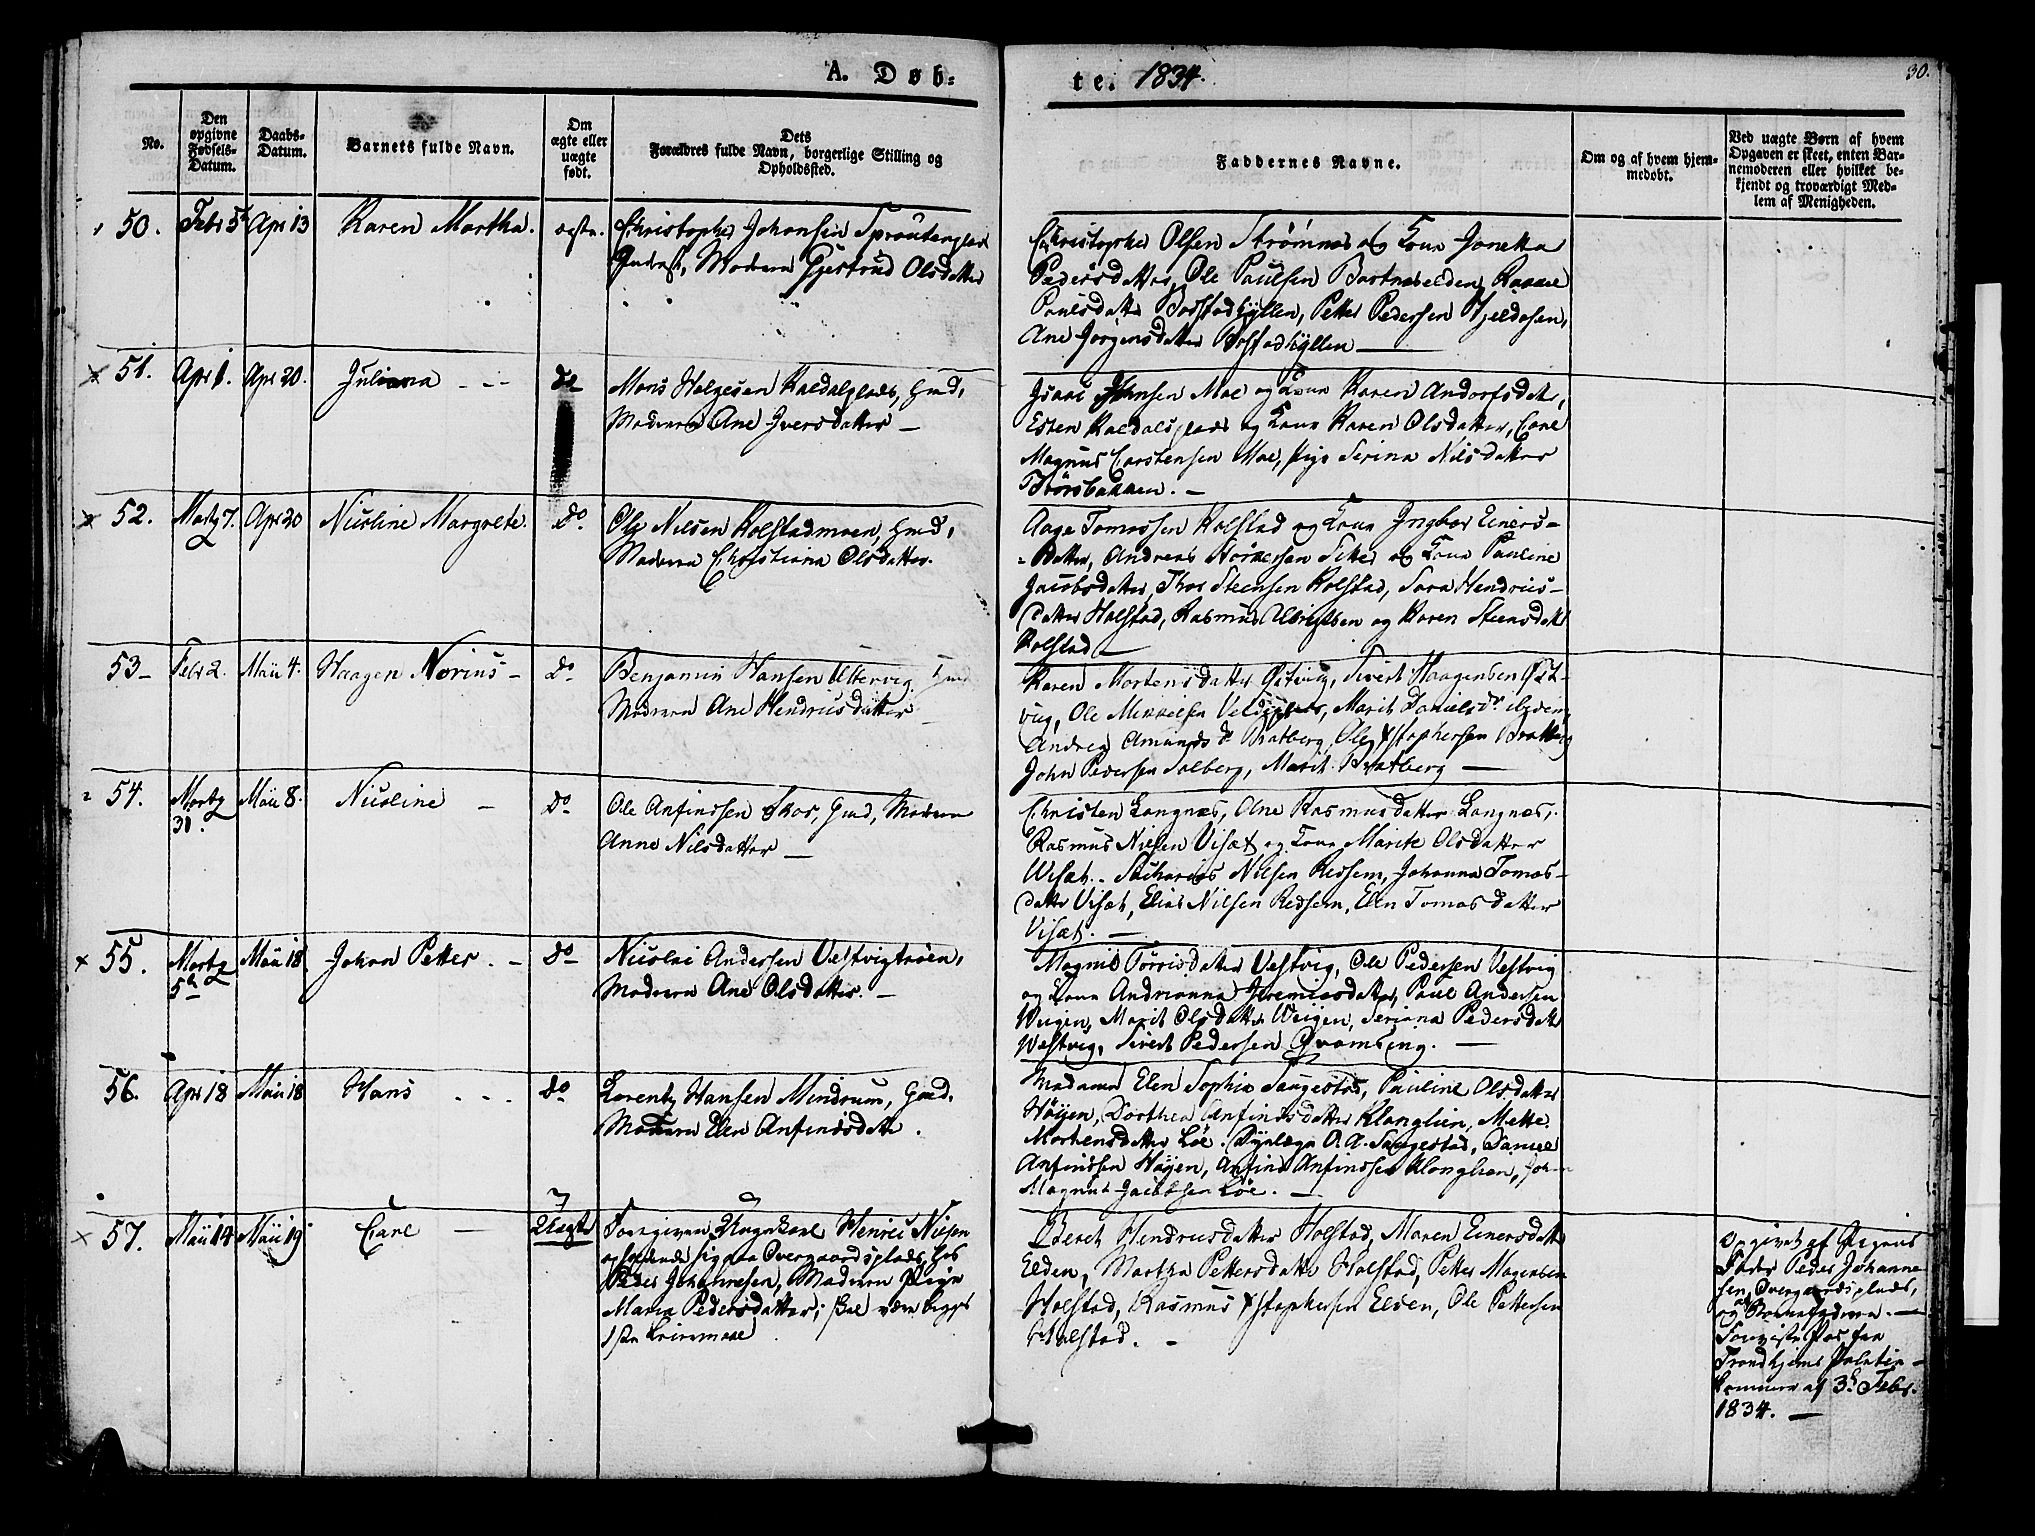 A. Døb-
te. 1834.
30.
No.
Den opgivne Fødsels-Datum.
Daabs-Datum.
Barnets fulde Navn.
Om ægte eller uægte født.
Dets Forældres fulde Navn, borgerlige Stilling og Opholdssted.
Faddernes Navne.
Om og af hvem hjemmedøbt.
Ved uægte Børn af hvem Opgaven er skeet, enten Barnemoderen eller hvilket bekjendt og troværdigt Medlem af Menigheden.
50. Febr 5 Apr 13 Karen Martha. ægte.
Christopher Johansen
Moderen Gjertrud Olsdatter
Christopher Olsen Strømnæs og Kone Jonetta
Pedersdatter, Ole Paulsen
Paulsdatter Bostadhyllen, Petter Pedersen
Ane Jørgensdatter Bostadhyllen —
51. Apr 1. Apr 20. Juliana do
Mons Helgesen Kaldalplads, Huusmd,
Moderen Ane Iversdatter —
Isaac Johnsen Moe og Kone Karen
Esten Kaldalsplads og Kone Karen Olsdatter, Carl
Magnus Carstensen Moe, Pige Serina Nilsdatter
52. Martz 7. Apr 20 Nicoline Margrete. do.
Ole Nilsen Holstadmoen,
Moderen Christiana Olsdatter.
Aage Tomassen Holstad og Kone Ingbor Einers-
datter, Andreas og Kone Pauline
Jacobsdatter, Thor Steensen Holstad, Sara Hendrics-
datter Holstad, Rasmus og Karen Steensdatt
Holstad —
53 Febr 2. Maii 4. Haagen Norius do
Benjamin Hansen Utvorvig
Moderen Ane Hendricsdatter
Karen Mortensdatter Østvig, Sivert Haagensen Øst-
vig, Ole Mikkelsen, Marit Danielsdr. ibidem,
Andrea Amundsdr Bratberg, Ole Xstophersen Bratberg
John Pedersen Solberg, Marit Bratberg —
54. Martz 31. Maii 8. Nicoline do
Ole Anfindsen Skor, Moderen
Anne Nilsdatter —
Christen Langnæs, Ane Rasmusdatter Langnæs,
Rasmus Nilsen Visæt og Kone Marite Olsdatter
Wisæt. Zacharias Nilsen Redsem, Johanna Tomas-
datter Visæt, Elias Nilsen Redsem, Elen Tomasdatter
Visæt. —
55. Martz 5 Maii 18 Johan Petter. do
Nicolai Andersen Vestvigtrøen,
Moderen Ane Olsdatter. —
Magnil Torrisdatter Vestvig, Ole Pedersen Vestvig
og Kone Andrianna Jeremiasdatter, Paul Andersen
Weigen, Marit Olsdatter Weigen, Seriana Pedersdatt
Westvig, Sivert Pedersen
56. Apr 18 Maii 18 Hans do
Lorentz Hansen Mindrum,
Moderen Elen Anfindsdatt.
Madame Elen Sophia Saugestad, Pauline Olsdatter
Høyen, Dorthea Anfindsdatter Klænglien, Mette
Mortensdatter Løe. O. A. Saugestad, Daniel
Anfindsen Høyen, Anfind Anfindsen
Magnus Jacobsen Løe. —
57. Maii 14 Maii 19 Carl — Uægte
Foregiven Ungkarl Henric Nilsen
opholdende sig paa Overgaardsplads hos
Peder Johannesen, Moderen Pige
Maria Pedersdatter; skal være begges
1ste Leiermaal
Beret Hendricsdatter Holstad, Maren Einersdatt
Elden, Martha Pettersdatt Holstad, Petter Mogensen
Holstad, Rasmus Xstophersen Elden, Ole Pettersen
Holstad. —
Opgivet af Pigens
Fader Peder Johanne-
sen Overgaardsplads,
og Barnefaderen. —
Trondhjems
af 3de Febr.
1834. —